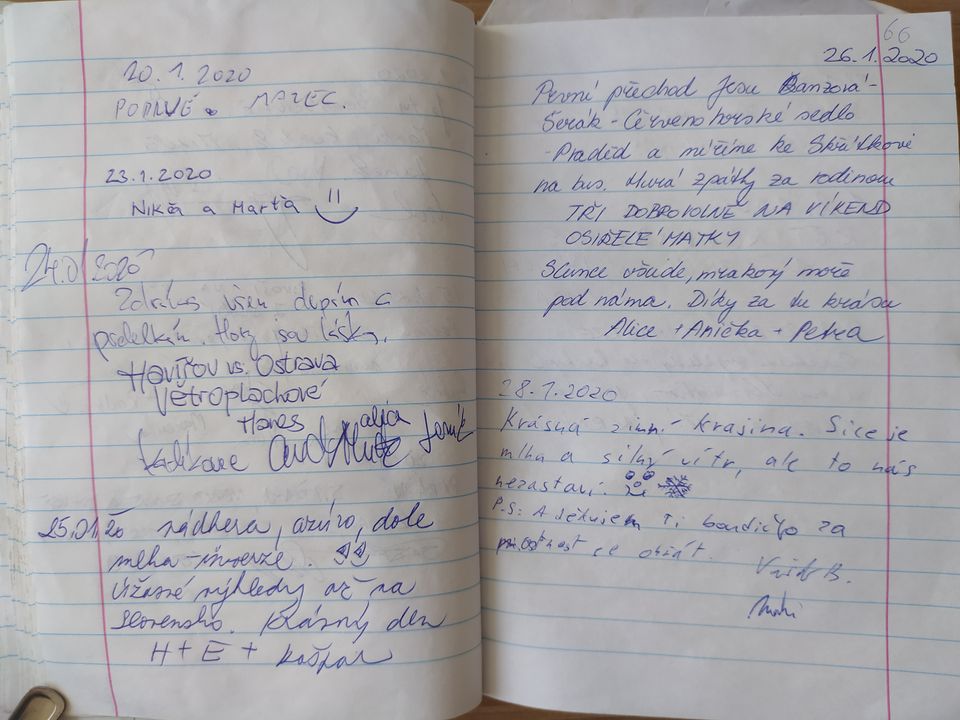 20.1.2020
POPRVÉ. MAZEC.
23.1.2020
Nikča a Marťa
24.01 2020
Zdravas všem depím a
prdelkám. Hory jsou láska.
Havířov vs. Ostrava
Větroplachové
Hanes
alja
Jeník
25.01.20 nádhera, azúro, dole
mlha - inverze.
Úžasné výhledy až na
Slovensko. Krásný den
H + E + Kašpar
66
26.1.2020
První přechod Jesu Ranzová-
Šerák - Červenohorské sedlo
- Praděd a míříme ke Skřítkovi
na bus. Hurá zpátky za rodinou
TŘI DOBROVOLNĚ NA VÍKEND
OSIŘELÉ MATKY
Slunce všude, mrakový moře
pod náma. Díky za tu krásu
Alice + Anička + Petra
28.1.2020
Krásná zimní krajina. Sice je
mlha a silný vítr, ale to nás
nezastaví.
P.S: A děkujem Ti boudičko za
možnost se ohřát.
B.